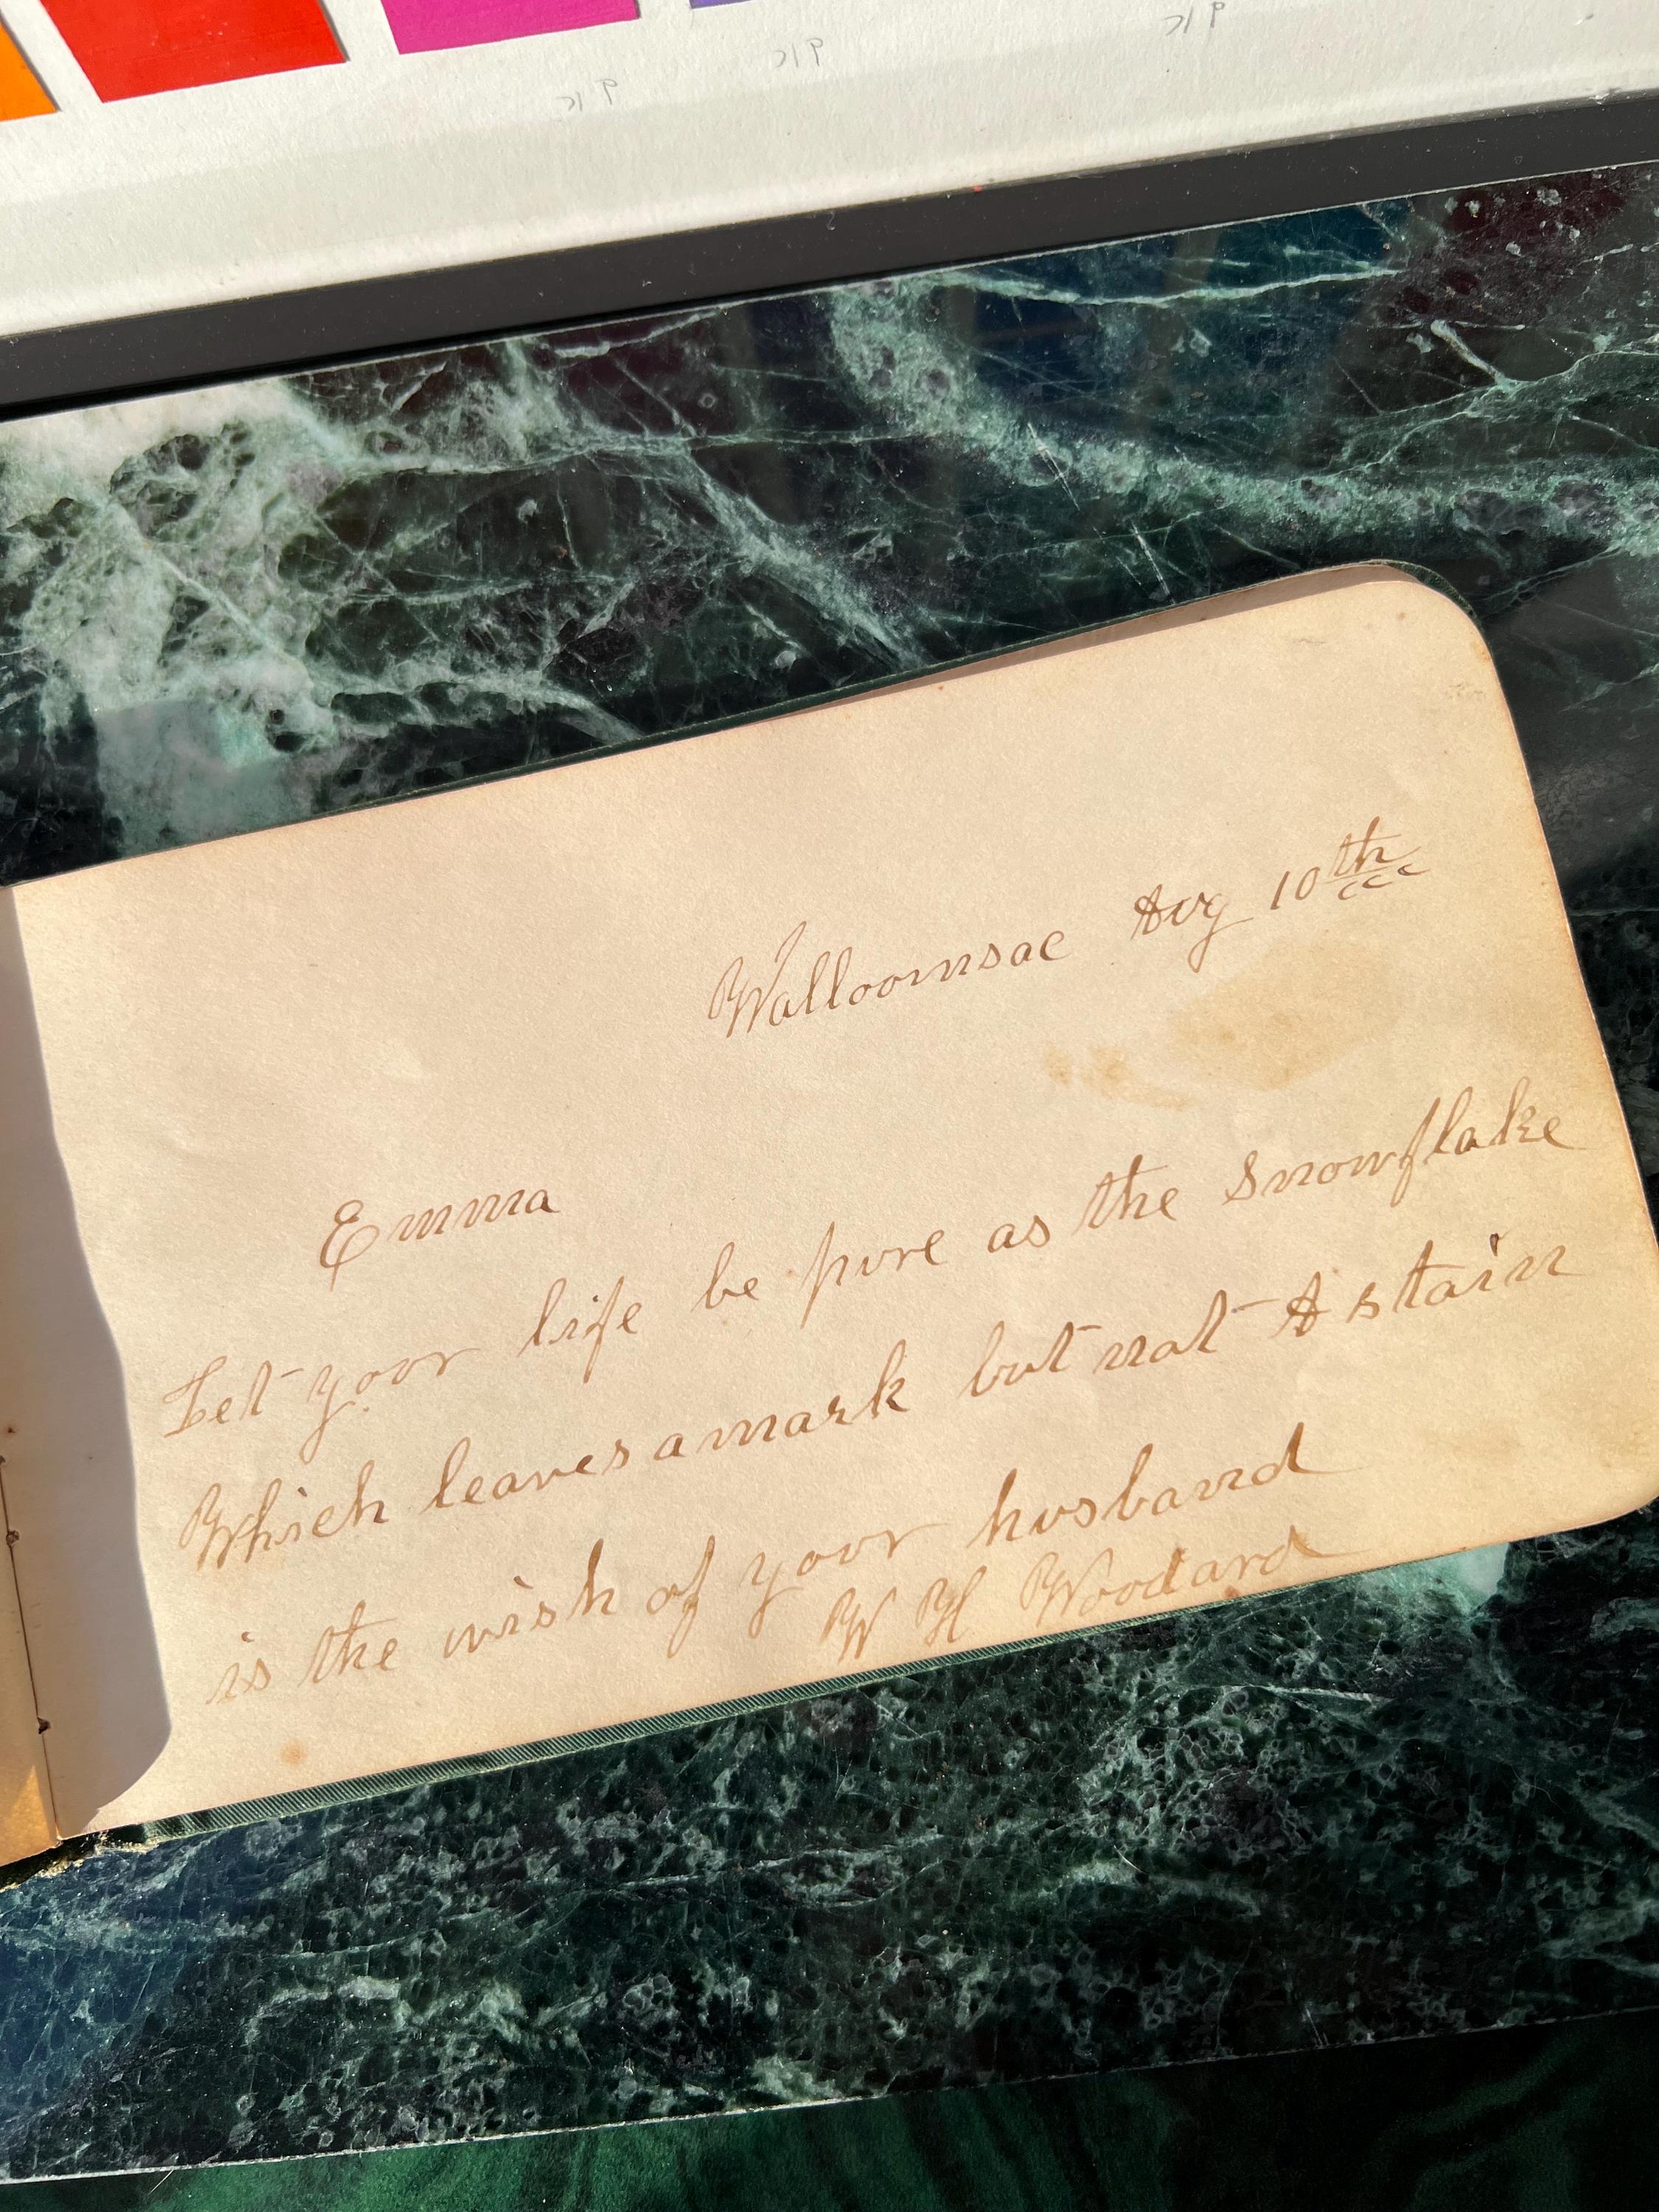 Walloomsac Aug 10th
Emma
Let your life be pure as the Snowflake
Which leaves a mark but not A stain
is the wish of your husband
W H Woodard